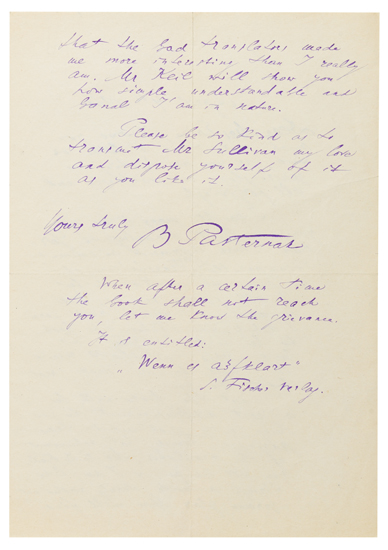 that the bad translators made
me more interesting than I really
am. Mr Keil will show you
how simple understandable and
banal I am in nature.
Please be so kind as to
transmit Mr Sullivan my love
and dispose yourself of it
as you like it.
Yours truly
B Pasternak
When after a certain time
the book shall not reach
you, let me know the grievance.
It is entitled:
„Wenn es aufklart"
S. Fischer Verlag.